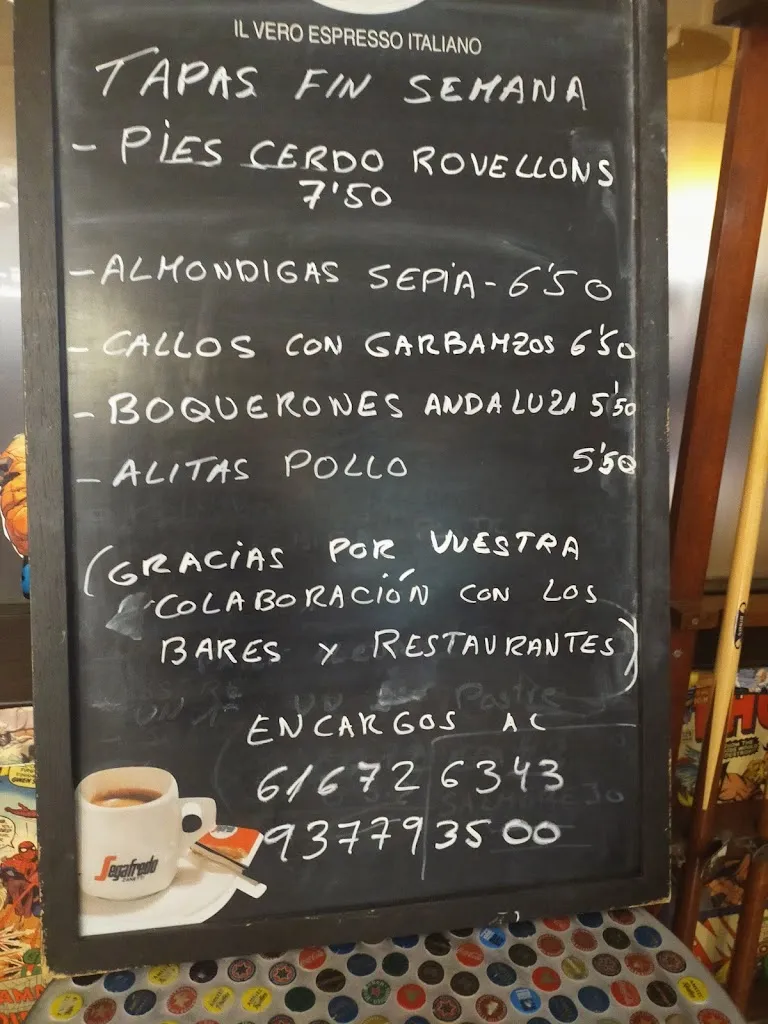 IL VERO ESPRESSO ITALIANO
TAPAS FIN SEMANA
- PiES CERDO ROVELLONS
7'50
- ALMONDIGAS SEPiA - 6'50
- CALLOS CON GARBAMZOS 6'50
- BOQUERONES ANDALUZA 5'50
- ALITAS POLLO 5'50
(GRACiAS POR VUESTRA
COLABORACIÓN CON LOS
BARES Y RESTAURANTES)
ENCARGOS AL
616726343
937793500
Segafredo
ZANETTI